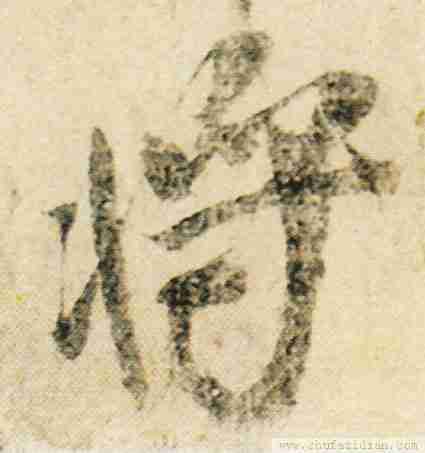 將
www.shufazidian.com